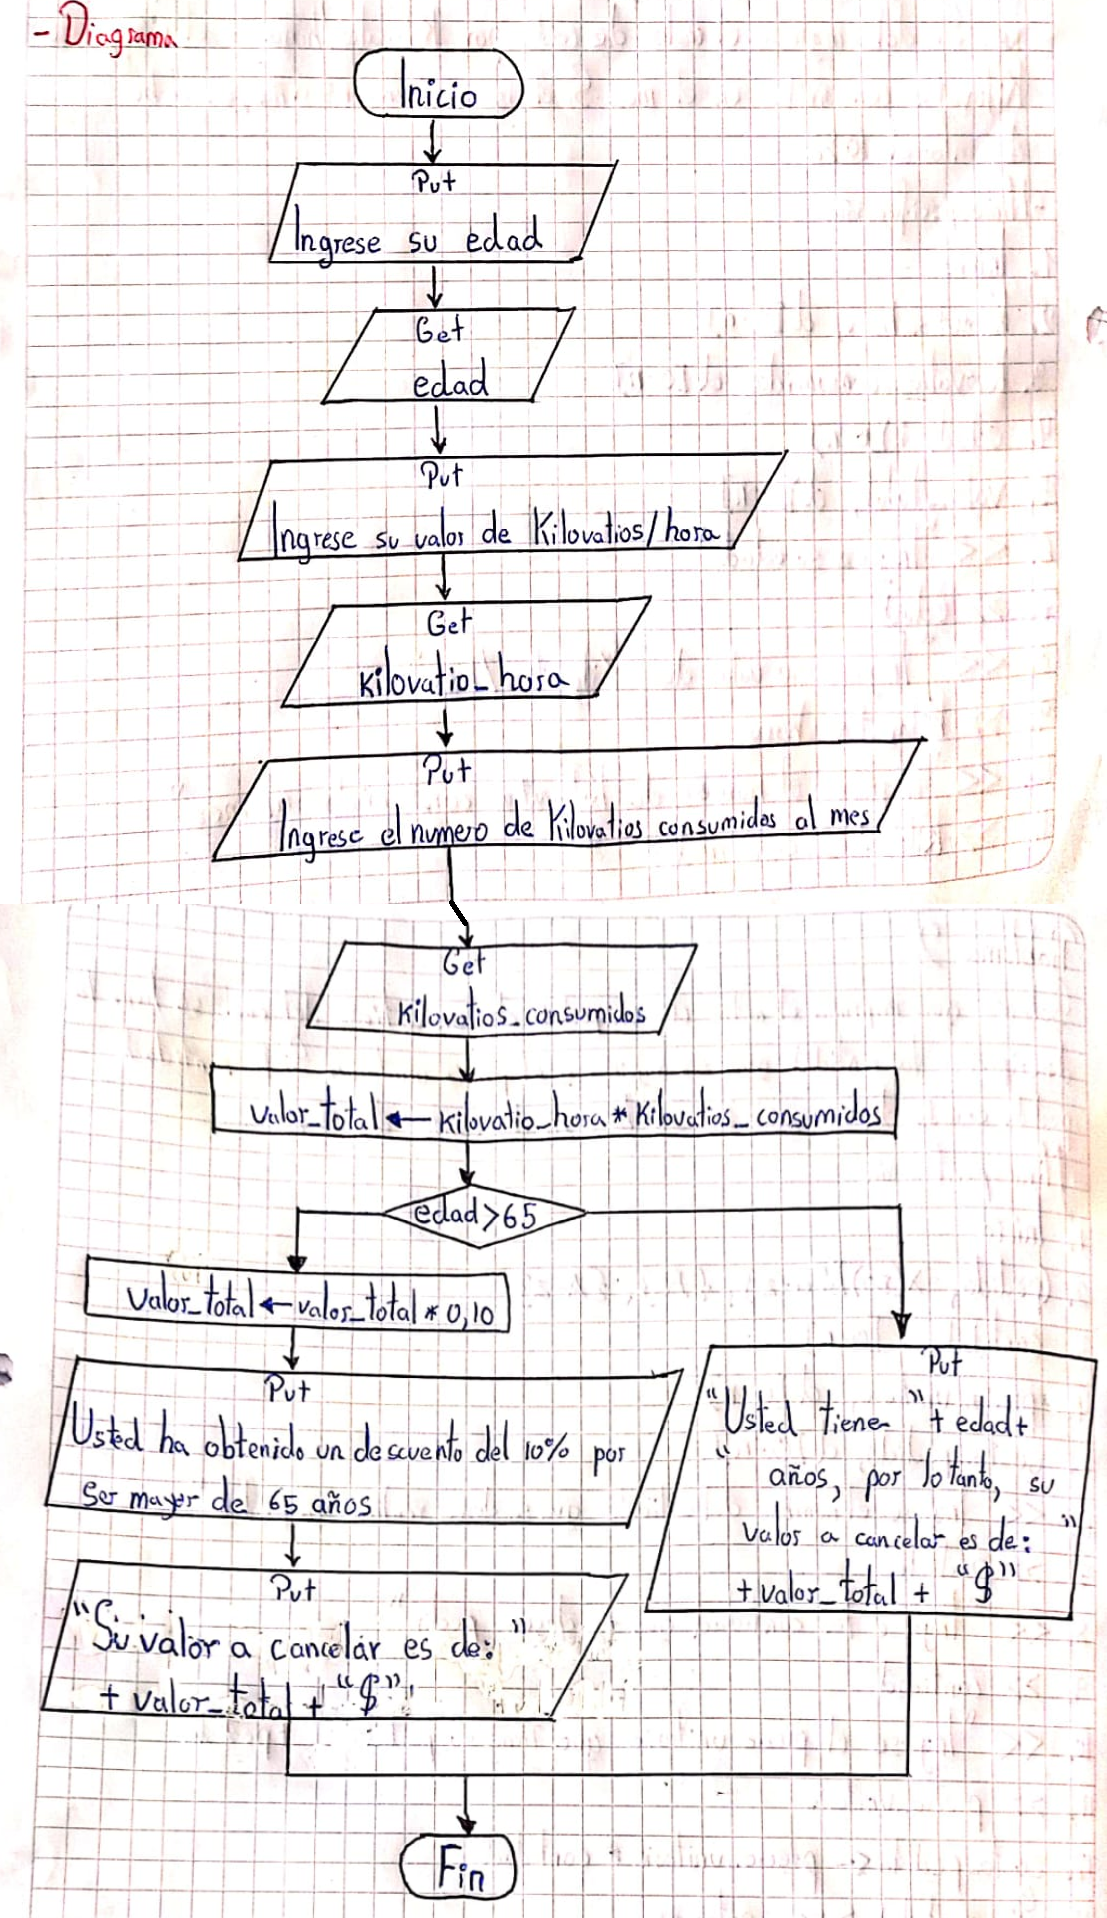 - Diagrama
Inicio
Put
Ingrese su edad
Get
edad
Put
Ingrese su valor de Kilovatios/hora
Get
Kilovatio_hora
Put
Ingrese el numero de Kilovatios consumidos al mes
Get
Kilovatios_consumidos
valor_total ← Kilovatio_hora * Kilovatios_consumidos
edad>65
valor_total ← valor_total * 0,10
Put
Usted ha obtenido un descuento del 10% por
ser mayor de 65 años
Put
"Su valor a cancelar es de: "
+ valor_total + "$"
Put
"Usted tiene " + edad+
" años, por lo tanto, su
valor a cancelar es de: "
+ valor_total + "$"
Fin